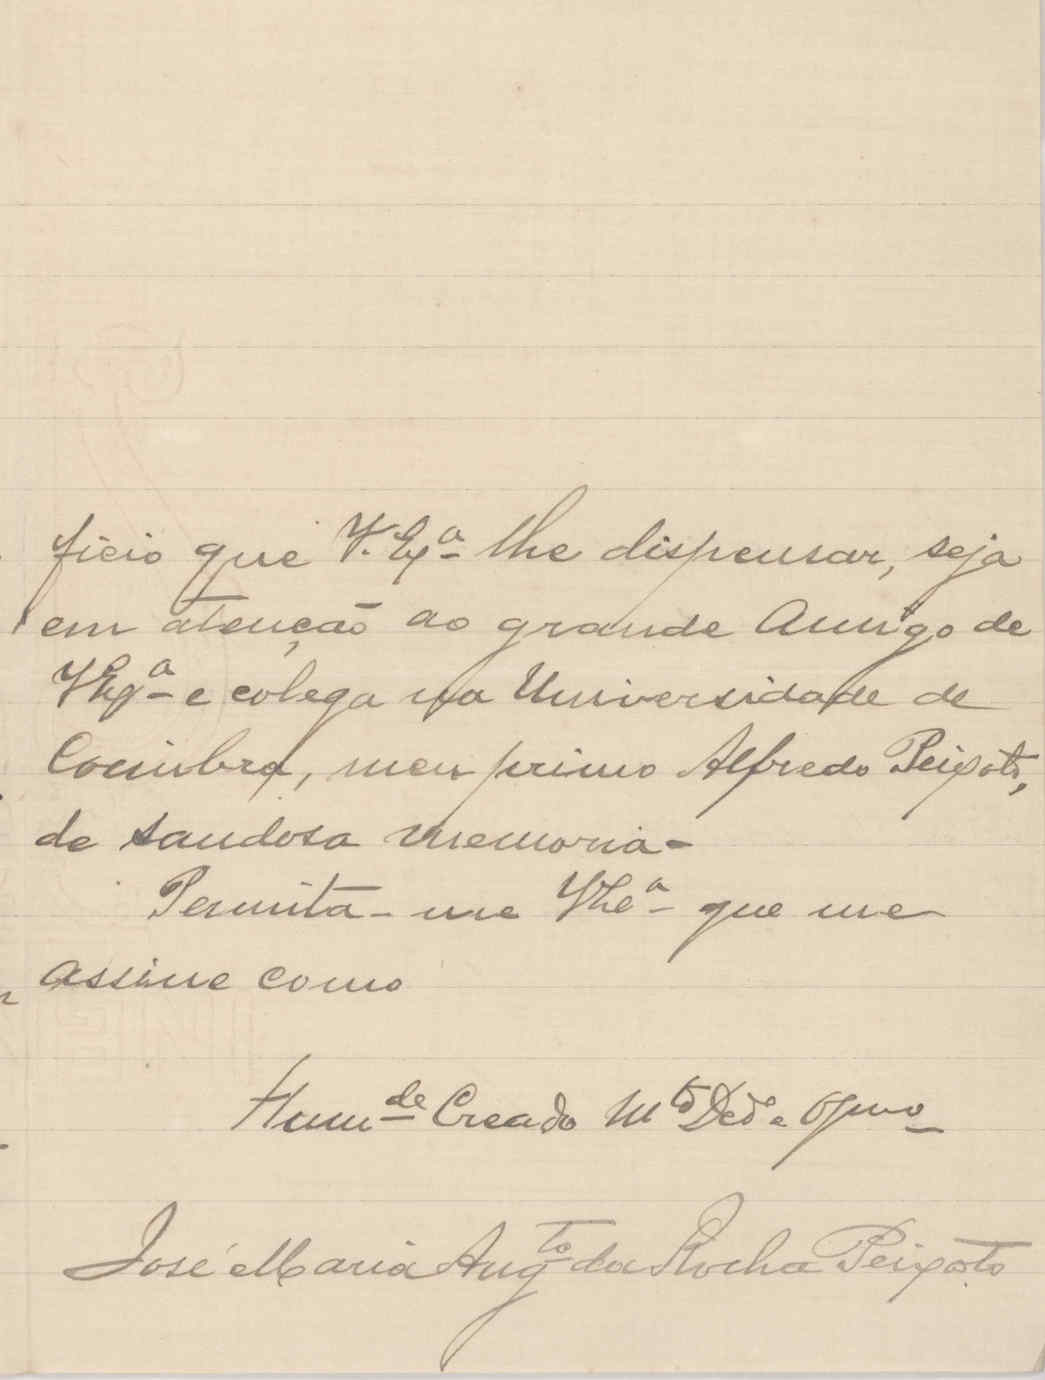 ficio que V. Exª lhe dispensar, seja
em atenção ao grande Amigo de
VExª e colega na Universidade de
Coimbra, meu primo Alfredo Peixoto,
de saudosa memoria -
Permita-me VExª que me
assine como
Humde Creado Mto Dedo e Obgmo
José Maria Augto da Rocha Peixoto